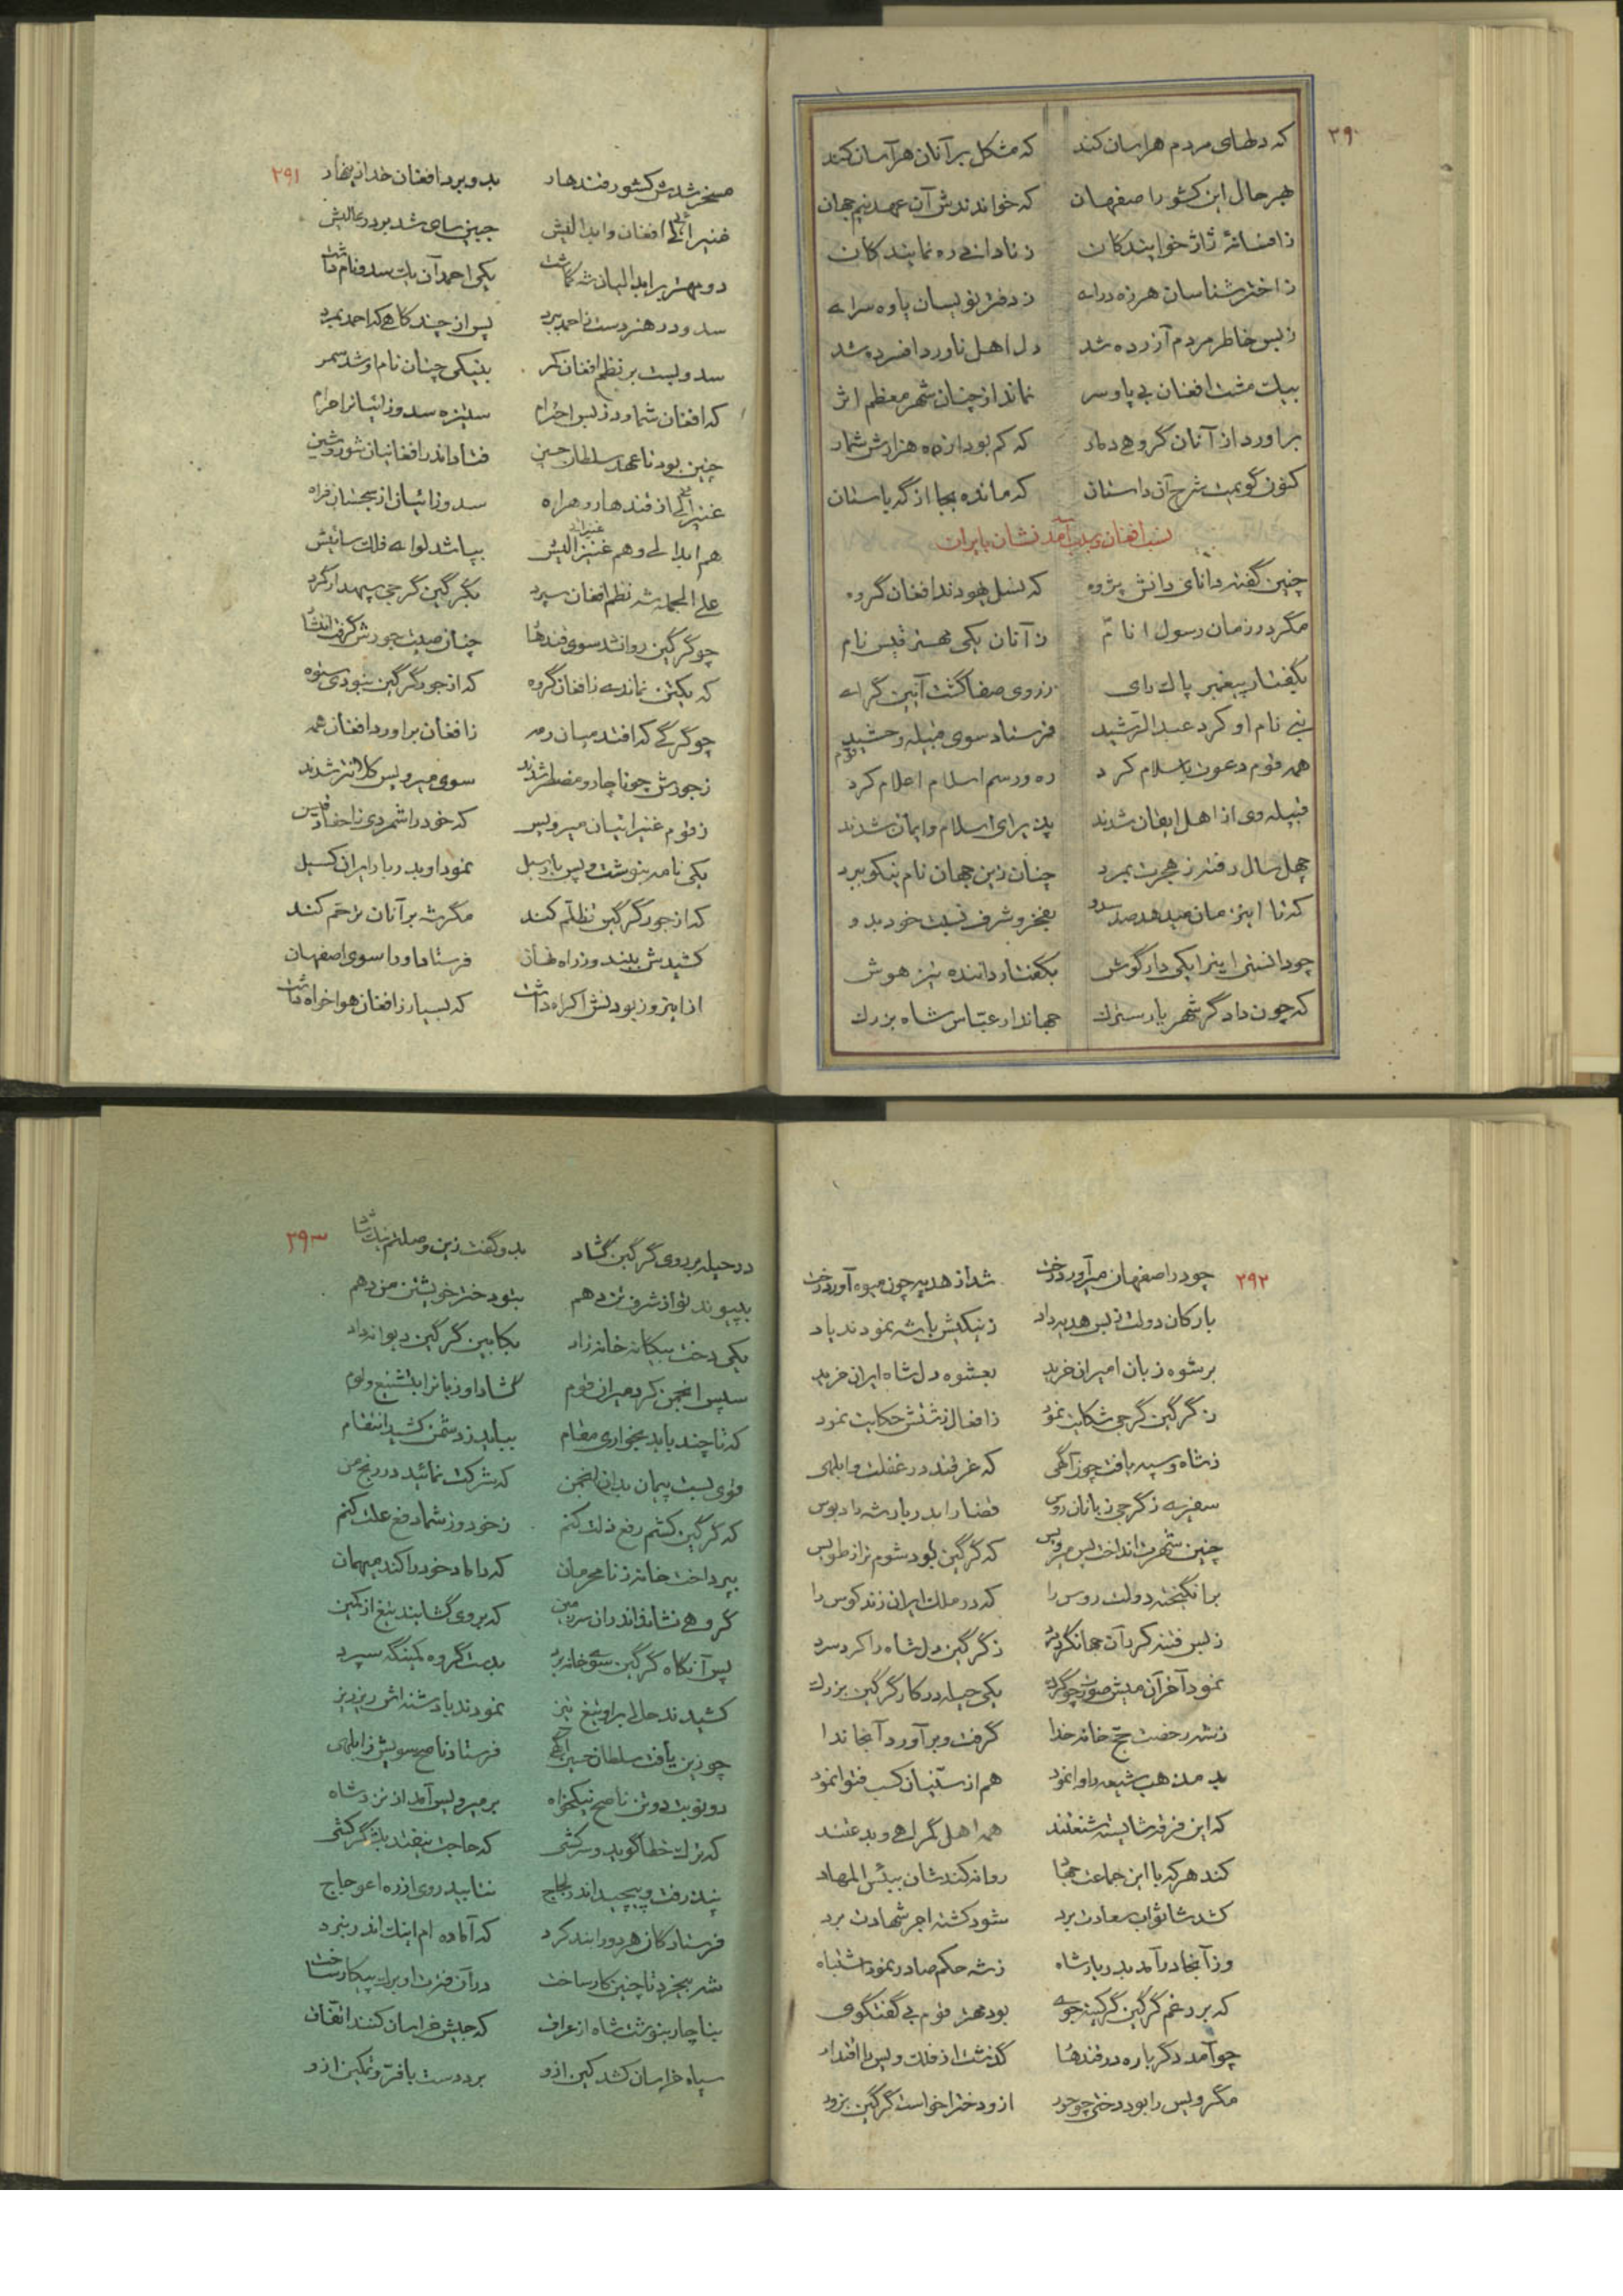 ۲۹۰
که دلهای مردم هراسان کند که مشکل بر آنان هر آسان کند
بهر حال این کشور اصفهان که خواندندش آن عهد نیم جهان
ز افسانهٔ ژاژ خوایندکان ز نادانی ره نمایندکان
ز اختر شناسان هرزه درای ز دفتر نویسان یاوه سرای
ز بس خاطر مردم آزرده شد دل اهل ناورد افسرده شد
بیک مشت افغان بی پا و سر نماند از چنان شهر معظم اثر
براورد از آنان گروهی دمار که کم بود از ده هزارش شمار
کنون گویمت شرح آن داستان که مانده بجا از گه باستان
نسب افغان و سبب آمدنشان بایران
چنین گفت دانای دانش پژوه که نسل یهودند افغان گروه
مگر در زمان رسول انام ز آنان یکی مهتر قیس نام
بگفتار پیغمبر پاک رای ز روی صفا گشت آیین گرای
نبی نام او کرد عبد الرشید فرستاد سوی قبیله وحشید
همه قوم دعوت باسلام کرد ره و رسم اسلام اعلام کرد
قبیله وی از اهل ایقان شدند پذیرای اسلام و ایمان شدند
چهل سال رفته ز هجرت بمرد چنان زین جهان نام نیکو ببرد
که تا این زمان میدهد صد سدو بفخر و شرف نسبت خود بدو
چو دانستی اینرا یکی دار گوش بگفتار داننده تیز هوش
که چون دادگر شهریار سترک جهاندار عباس شاه بزرک
۲۹۱
مسخر شدش کشور قندهار بدو برد افغان خدا زینهار
غنیزائی افغان و ابدالیش جبین سای شد بر در عالیش
دو مهتر بر ابدالیان شه گماشت یکی احمد آن یک سدو نام داشت
سدو در هنر دست ز احمد ببرد پس از چند گاهی که احمد بمرد
سدو بست بر نظم افغان کمر بنیکی چنان نام او شد سمر
که افغان شمارد ز بس احترام ستیزه سدوزائیانرا حرام
چنین بود تا عهد سلطان حسین فتاد اندر افغانیان شور و شین
غنیزائی از قندهار و هراه سدوزائیان از سجستان فراه
هم ابدالی و هم غنیزائیش بپا شد لوای فلک سائیش
علی الجمله شه نظم افغان سپرد بگرگین گرجی سپهدار گرد
چو گرگین روانشد سوی قندهار چنان صیت جورش گرفت انتشار
که یکتن نماندی ز افغان گروه که از جور گرگین نبودی ستوه
چو گرگی که افتد میان رمه ز افغان براورد افغان همه
ز جورش چو ناچار و مضطر شدند سوی میر ویس کلانتر شدند
ز قوم غنیزائیان میر ویس که خود را شمردی ز احفاد قیس
یکی نامه بنوشت ویس باسیل نمود او بدربار ایران گسیل
که از جور گرگین تظلم کنند مگر شه بر آنان ترحم کنند
کشیدش ببند و ز راه نهان فرستاد او را سوی اصفهان
ازاینرو ز بودنش اکراه داشت که بسیار ز افغان هواخواه داشت
۲۹۲
چو در اصفهان میر آورد رخت شد از هدیه چون میوه آور درخت
بارکان دولت ز بس هدیه داد ز نیکیش با شه نمودند یاد
برشوه زبان امیران خرید بعشوه دل شاه ایران خرید
ز گرگین گرجی شکایت نمود ز افعال زشتش حکایت نمود
ز شاه و سپه یافت چون آگهی که غرقند در غفلت و ابلهی
سفیری ز گرجی زبانان روس قضا را بدربار شه داد بوس
چنین شهرت انداخت پس میر ویس که گرگین بود شوم تر از طویس
برانگیخته دولت روس را که در ملک ایران زند کوس را
ز بس فتنه کرد آن جهانگرد مرد ز گرگین دل شاه را کرد سرد
نمود آخر آن میش صورت چو گرگ یکی حیله در کار گرگین بزرک
ز شه رخصت حج خانه خدا گرفت و برآورد آنجا ندا
بد مذهب شیعه را وانمود هم از سنیان کسب فتوا نمود
که این فرقه شایسته شنعتند همه اهل گمراهی و بدعتند
کند هر که با این جماعت جهاد روانه کندشان ببئس المهاد
کشدشان ثواب سعادت برد شود کشته اجر شهادت برد
وز آنجا درآمد بدربار شاه ز شه حکم صادر نمود اشتباه
که بر رغم گرگین گرگینه جوی بود مهتر قوم بی گفتگوی
چو آمد دگر باره در قندهار گذشت از فلک ویس با اقتدار
مگر ویس را بود دختی چو حور ازو دختر خواست گرگین بزور
۲۹۳
در حیله بر روی گرگین گشاد بدو گفت زین وصلتم نیک شاد
بپیوند تو از شرف تن دهم بتو دختر خویشتن من دهم
یکی دخت بیگانه خانه زاد بکابین گرگین دیوانه داد
سپس انجمن کرد میران قوم گشاد او زبانرا بتشنیع و لوم
که تا چند باید بخواری مقام بباید ز دشمن کشید انتقام
قوی بست پیمان بدان انجمن که شرکت نمائید در رنج من
که گرگین کشم رفع ذلت کنم ز خود وز شما دفع علت کنم
بپرداخت خانه ز نامحرمان که داماد خود را کند میهمان
گروهی نشاند اندران سرزمین که بر وی گشایند تیغ از کمین
پس آنگاه گرگین سوی خانه برد بدست گروه کمینگه سپرد
کشیدند حالی بر او تیغ تیز نمودند با دشنه اش ریز ریز
چو زین یافت سلطان حسین آگهی فرستاد ناصح سویش ز ابلهی
دو نوبت دو تن ناصح نیکخواه بر میر ویس آمد از نزد شاه
که ترک خطا گوید و سرکشی که حاجت نیفتد بلشگر کشی
نپذرفت و پیچید اندر لجاج نتابید روی از ره اعوجاج
فرستادگان هر دو را بند کرد که آماده ام اینک اندر نبرد
شه بیخرد تا چنین کار ساخت در آن فترت او برگ پیکار ساخت
بناچار بنوشت شاه از عراق که جیش خراسان کنند اتفاق
سپاه خراسان کشد کین ازو برد دست با فر و تمکین ازو